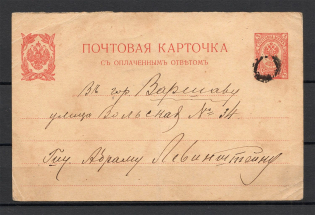 ПОЧТОВАЯ КАРТОЧКА
СЪ ОПЛАЧЕННЫМЪ ОТВѢТОМЪ.
Въ гор. Варшаву
улица Вольская № 34
Абраму Левинштейну